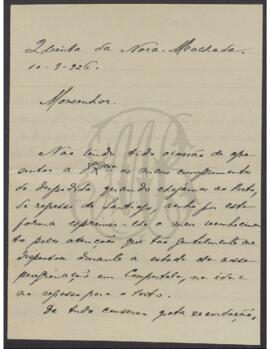 Quinta da Nora. Mealhada.
10-9-926.
Monsenhor.
Não tendo tido ocasião de apre-
sentar a V. Ex.cia os meus cumprimentos
de despedida, quando chegamos ao Porto,
de regresso de Santiago, venho por esta
forma exprimir-lhe o meu reconhecimento
pelas atenções que tão gentilmente me
dispensou durante a estada de essa
peregrinação em Compostela, na ida e
no regresso para o Porto.
De tudo conservo grata recordação,